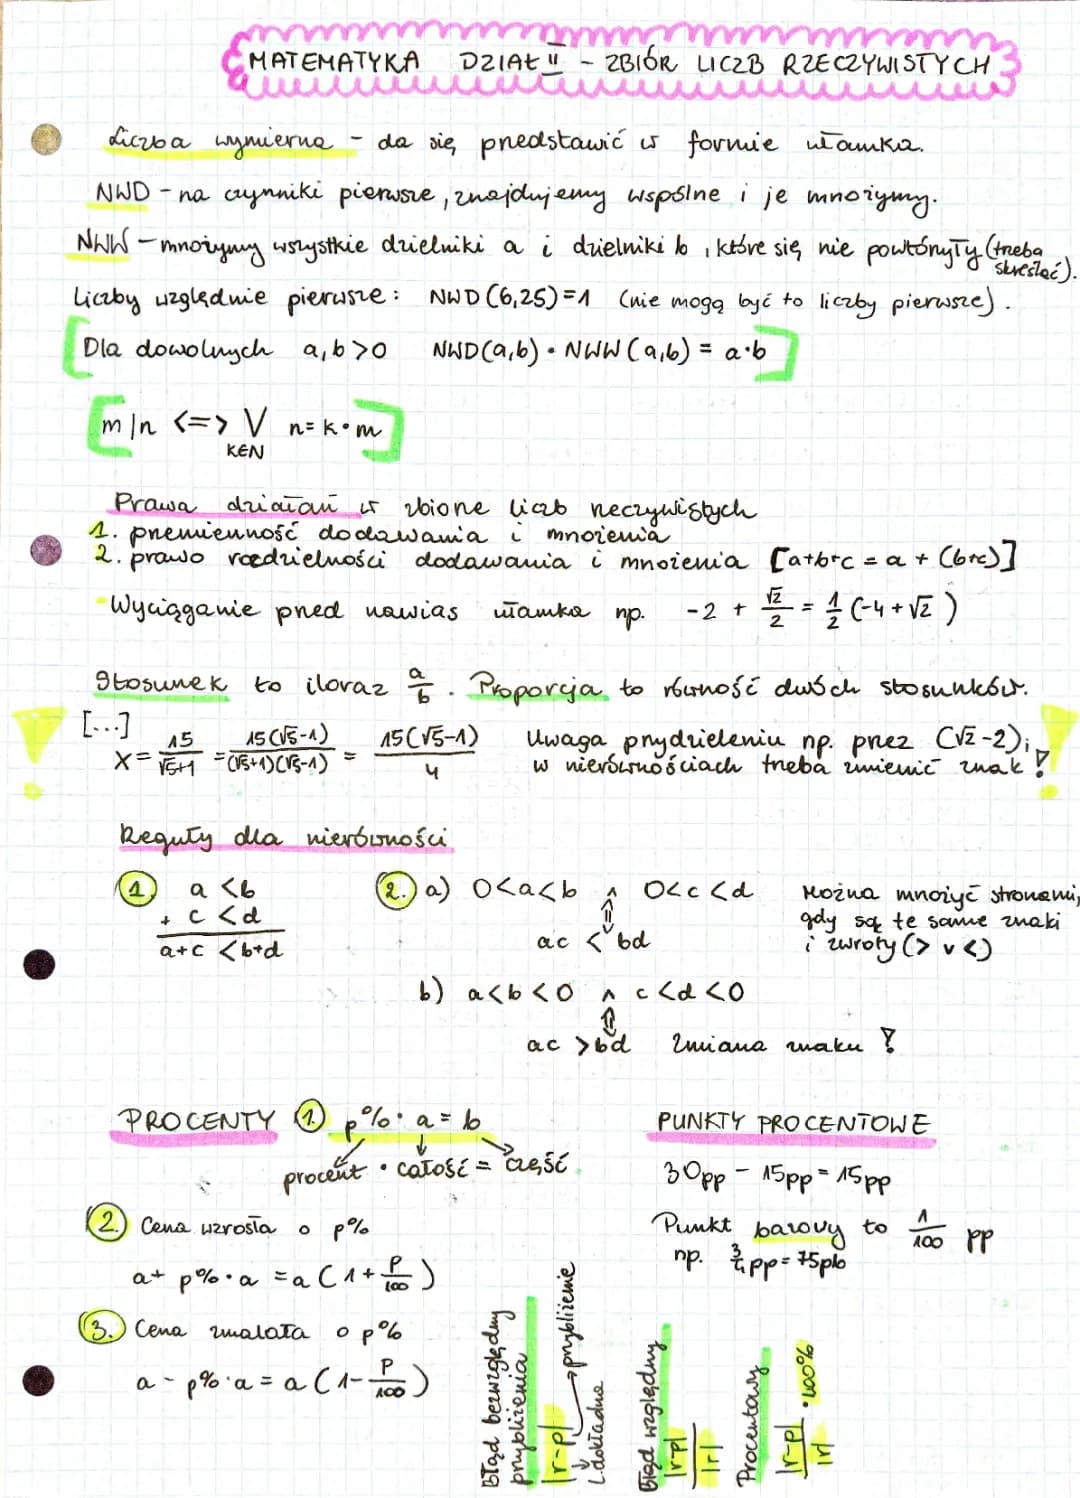 MATEMATYKA DZIAŁ II - ZBIÓR LICZB RZECZYWISTYCH
Liczba wymierna - da się przedstawić w formie ułamka.
NWD - na czynniki pierwsze, znajdujemy wspólne i je mnożymy.
NWW - mnożymy wszystkie dzielniki a i dzielniki b, które się nie powtórzyły (trzeba skreślać).
Liczby względnie pierwsze: NWD(6,25)=1 (nie mogą być to liczby pierwsze).
Dla dowolnych a,b>0 NWD(a,b) • NWW(a,b) = a·b
m|n <=> V n=k•m
k∈N
Prawa działań w zbiorze liczb rzeczywistych
1. przemienność dodawania i mnożenia
2. prawo rozdzielności dodawania i mnożenia [a+b+c = a + (b+c)]
Wyciąganie przed nawias ułamka np. -2 + √2/2 = 1/2 (-4+√2)
Stosunek to iloraz a/b. Proporcja to równość dwóch stosunków.
[...]
x = 15/(√5+1) = 15(√5-1)/(√5+1)(√5-1) = 15(√5-1)/4
Uwaga przy dzieleniu np. przez (√2-2);
w nierównościach trzeba zmienić znak!
Reguły dla nierówności
1. a <b
+ c <d
a+c <b+d
2. a) 0<a<b ∧ 0<c<d
⇓
ac < bd
Można mnożyć stronami,
gdy są te same znaki
i zwroty (> v <)
b) a<b<0 ∧ c<d<0
⇓
ac >bd Zmiana znaku!
PROCENTY 1. p%· a = b
procent • całość = część
2. Cena wzrosła o p%
a+ p%·a = a(1+p/100)
3. Cena zmalała o p%
a - p%·a = a(1-p/100)
PUNKTY PROCENTOWE
30pp - 15pp = 15pp
Punkt bazowy to 1/100 pp
np. 3/4 pp = 75pb
Błąd bezwzględny
przybliżenia
|r-p| → przybliżenie
↓ dokładna
Błąd względny
|r-p|/|r|
Procentowy
|r-p|/|r| · 100%